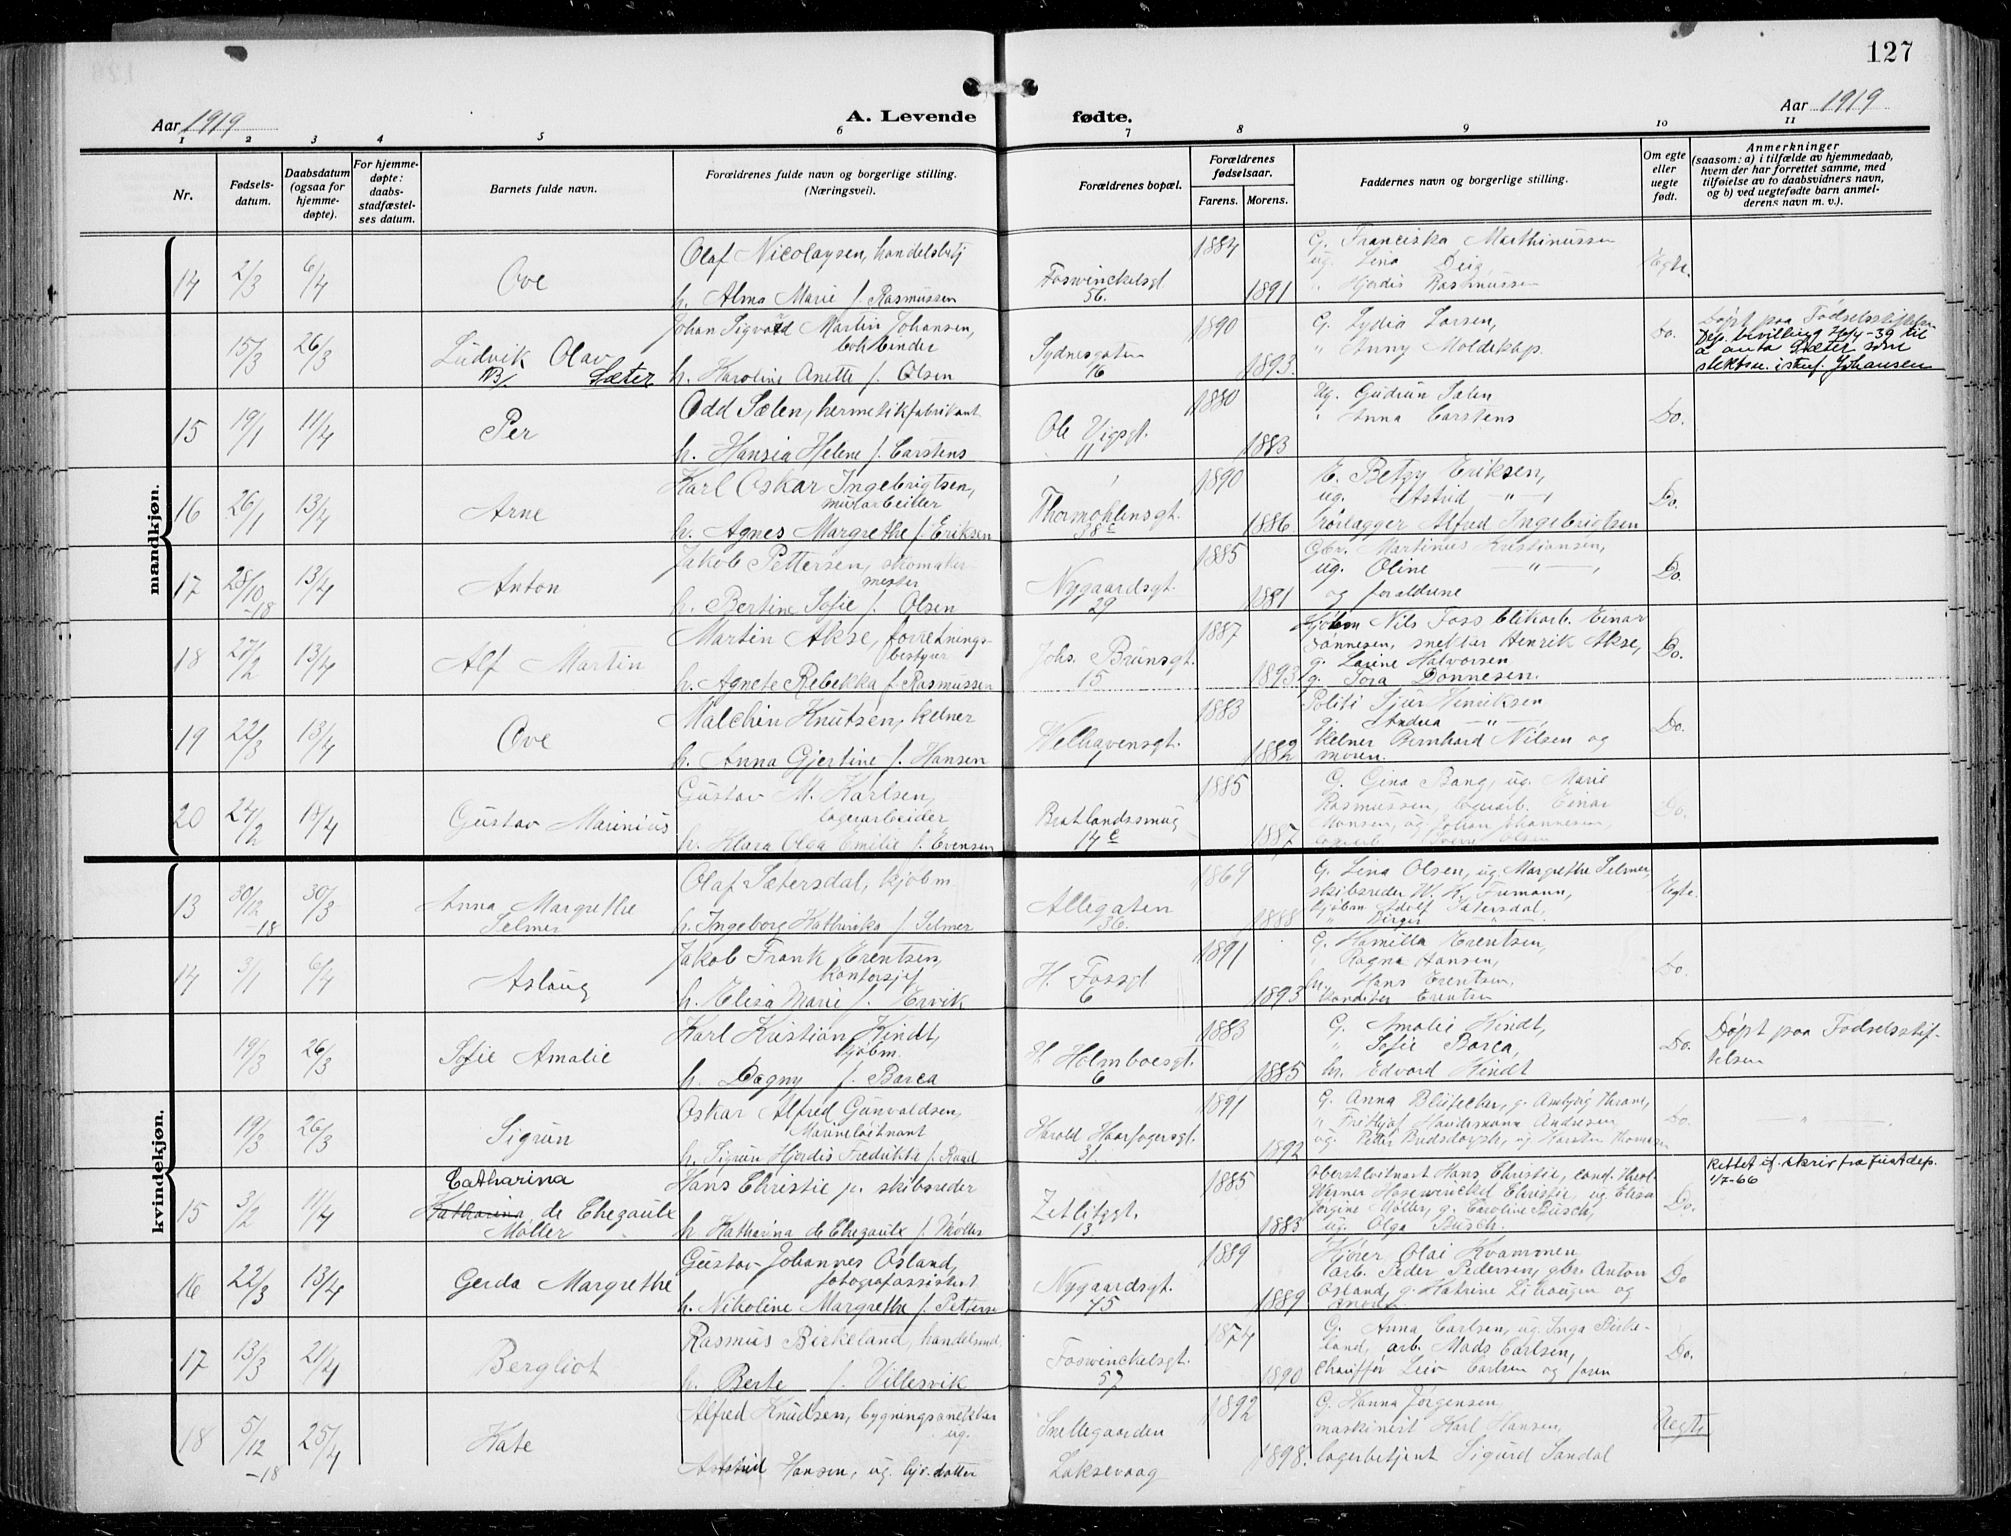 127
Aar 1919
A. Levende fødte.
Aar 1919
1 2 3 4 5 6 7 8 9 10 11
Nr.
Fødsels-
datum.
Daabsdatum
(ogsaa for
hjemme-
døpte).
For hjemme-
døpte:
daabs-
stadfæstel-
ses datum.
Barnets fulde navn.
Forældrenes fulde navn og borgerlige stilling.
(Næringsvei).
Forældrenes bopæl.
Forældrenes
fødselsaar.
Farens. Morens.
Faddernes navn og borgerlige stilling.
Om egte
eller
uegte
født.
Anmerkninger
(saasom: a) i tilfælde av hjemmedaab,
hvem der har forrettet samme, med
tilføielse av to daabsvidners navn,
og b) ved uegtefødte barn anmel-
derens navn m. v.).
mandkjøn.
14 2/3 6/4 Ove
Olaf Nicolaysen, handelsbetj
h. Alma Marie f. Rasmussen
Foswinckelsgt
56.
1884 1891
G. Franciska Marthinussen
ug. Lina
" Hjørdis Rasmussen
Egte.
15/3 26/3 Ludvik Olav
Sæter
Johan Sigvald Martin Johansen,
bokbinder
h. Karoline Anette f. Olsen
Sydnesgaten
16
1890 1893.
G. Lydia Larsen,
" Anny Moldeklep.
Do.
Døpt paa Fødselsstiftelsen
Dep. bevilling 26/4-39 til
å anta Sæter som
slektsn. istf. Johansen
15 19/1 11/4 Per
Odd Sælen, hermetikfabrikant
h. Hansia Helene f. Carstens
Ole Vigsgt.
11
1880 1883
Ug. Gudrun Sælen
" Anna Carstens
Do.
16 26/1 13/4 Arne
Karl Oskar Ingebrigtsen,
murarbeider
h. Agnes Margrethe f. Eriksen
Thormøhlensgt.
38c
1890 1886
E. Betzy Eriksen,
ug. Astrid — " —
rørlægger Alfred Ingebrigtsen
Do.
17 28/10 -18 13/4 Anton
Jakob Pettersen, skomaker-
mester
h. Bertine Sofie f. Olsen
Nygaardsgt.
29
1885 1881
Gbr. Martinus Kristiansen,
ug. Oline — " —,
og forældrene
Do.
18 27/2 13/4 Alf Martin
Martin Akse, forretnings-
bestyrer
h. Agnete Rebekka f. Rasmussen
Johs. Brunsgt.
15
1887 1893
Kjøbm Nils Foss blikarb. Einar
Tønnesen, snekker Henrik Akse,
g. Larine Halvorsen
g. Tora Dønnesen.
Do.
19 22/3 13/4 Ove
Malchin Knutsen, kelner
h. Anna Gjertine f. Hansen
Welhavensgt.
1
1883 1882
Politi Sjur Henriksen
g. Andrea — " —,
kelner Bernhard Nilsen og
moren.
Do.
20 24/2 18/4 Gustav Marinius
Gustav M. Karlsen,
lagerarbeider
h. Klara Olga Emilie f. Evensen
Bratlandssmug
14c
1885 1887
G. Gina Bang, ug. Marie
Rasmussen, lagerarb. Einar
Monsen, ug. Johan Johannesen,
lagerarb. Sverre Olsen
Do.
kvindekjøn.
13 30/12 -18 30/3 Anna Margrethe
Selmer
Olaf Sætersdal, kjøbm
h. Ingeborg Kathinka f. Selmer
Allegaten
36.
1869 1888
G. Lina Olsen, ug. Margrethe Selmer,
skibsreder W. K. Fumann,
kjøbm Adolf Sætersdal,
" Birger — " —
Egte.
14 3/1 6/4 Aslaug
Jakob Frank Erentsen,
kontorsjef
h. Elisa Marie f. Ervik
H. Fossgt
6
1891 1893
G. Hamilla Erentsen,
" Ragna Hansen,
hr. Hans Erentsen,
konditor Erentsen
Do.
19/3 26/3 Sofie Amalie
Karl Kristian Kindt,
kjøbm.
h. Dagny f. Barca
H. Holmboesgt.
6
1883 1885
G. Amalie Kindt,
" Sofie Barca,
hr. Edvard Kindt
Do.
Døpt paa Fødselsstif-
telsen
19/3 26/3 Sigrun
Oskar Alfred Gunvaldsen,
Marineløitnant
h. Sigrun Hjørdis Fredrikke f. Raad
Harald Haarfagersgt.
31.
1891 1892
G. Anna g. Ambjørg Thrane,
" Frithjof Andresen
ug. Petter ug Karsten Thomasen
Do.
— " —
15 3/2 11/4 Catharina
Katharina de Chezaulx
Møller
Hans Christie jr. skibsreder
h. Katharina de Chezaulx f. Møller
Zetlitzgt.
13.
1885 1883
Oberstløitnant Hans Christie, cand. theol
Werner Hosewinckel Christie, ug. Elisa
Jørgine Møller, g. Caroline Busch,
ug. Olga Busch.
Do.
Rettet if. skriv fra Justdep.
1/7-66
16 22/3 13/4 Gerda Margrethe
Gustav Johannes Osland,
fotografassistent
h. Nikoline Margrethe f. Petterse
Nygaardsgt.
45
1889 1889
Kjører Olai Kvammen,
arb. Peder Pedersen, gbr. Anton
Osland, g. Katrine Lihaugen og
moren
Do
17 13/3 21/4 Bergliot
Rasmus Birkeland, handelsmd.
h. Berte f. Villesvik
Foswinckelsgt.
57
1874 1890
G. Anna Carlsen, ug. Inga Birke-
land, arb. Mads Carlsen,
Chauffør Leiv Carlsen og faren
Do.
18 5/12 -18 25/4 Kate
Alfred Knudsen, bygningssnekker
ug.
Astrid Hansen, ug. hjv. datter
Snellegaarden
Laksevaag
1892 1898.
G. Hanna Jørgensen,
maskinist Karl Hansen,
lagerbetjent Sigurd Sandal
Uegte